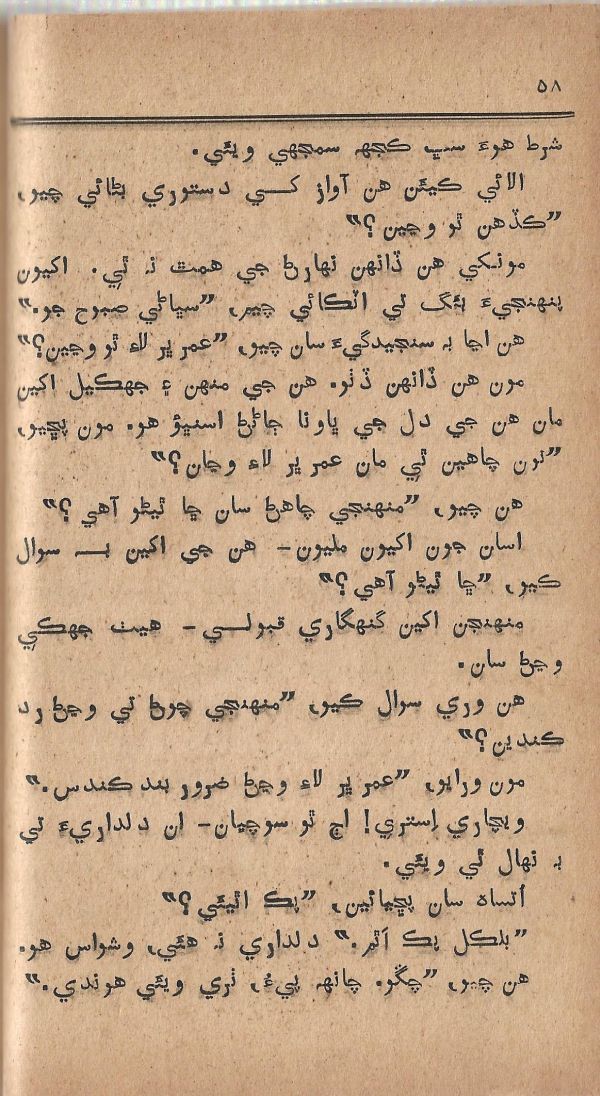 ۵۸
شرط هوءَ سڀ ڪجهہ سمجهي ويئي.
الائي ڪيئن هن آواز کسي دستوري بڻائي چيو،
”ڪڏهن ٿو وڃين؟“
مونکي هن ڏانهن نهارڻ جي همٿ نہ ٿي. اکيون
پنهنجيءَ بئگ تي اٽڪائي چيم، ”سڀاڻي صبوح جو.“
هن اڃا بہ سنجيدگيءَ سان چيو، ”عمر ڀر لاءِ ٿو وڃين؟“
مون هن ڏانهن ڏٺو. هن جي منهن ۽ جهڪيل اکين
مان هن جي دل جي ڀاونا ڄاڻڻ اسنڀؤ هو. مون پڇيو،
”تون چاهين ٿي مان عمر ڀر لاءِ وڃان؟“
هن چيو، ”منهنجي چاهڻ سان ڇا ٿيڻو آهي؟“
اسان جون اکيون مليون– هن جي اکين بہ سوال
ڪيو، ”ڇا ٿيڻو آهي؟“
منهنجن اکين گنهگاري قبولي– هيٺ جهڪي
وڃڻ سان.
هن وري سوال ڪيو، ”منهنجي چوڻ تي وڃڻ رد
ڪندين؟“
مون ورايو، ”عمر ڀر لاءِ وڃڻ ضرور بند ڪندس.“
ويچاري اِستري! اڄ ٿو سوچيان– ان دلداريءَ تي
بہ نهال ٿي ويئي.
اُتساهہ سان پڇيائين، ”پڪ اٿيئي؟“
”بلڪل پڪ اَٿم.“ دلداري نہ هئي، وشواس هو.
هن چيو، ”چڱو. چانهہ پيءُ، ٺري ويئي هوندي.“